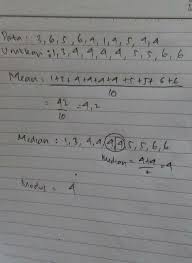 Data : 3, 6, 5, 6, 4, 1, 4, 5, 4, 4
Urutkan : 1, 3, 4, 4, 4, 4, 5, 5, 6, 6
Mean : 1+3+4+4+4+4+5+5+6+6
10
= 42
10
= 4,2
Median : 1, 3, 4, 4, 4, 4, 5, 5, 6, 6
Median = 4+4
2
= 4
Modus = 4